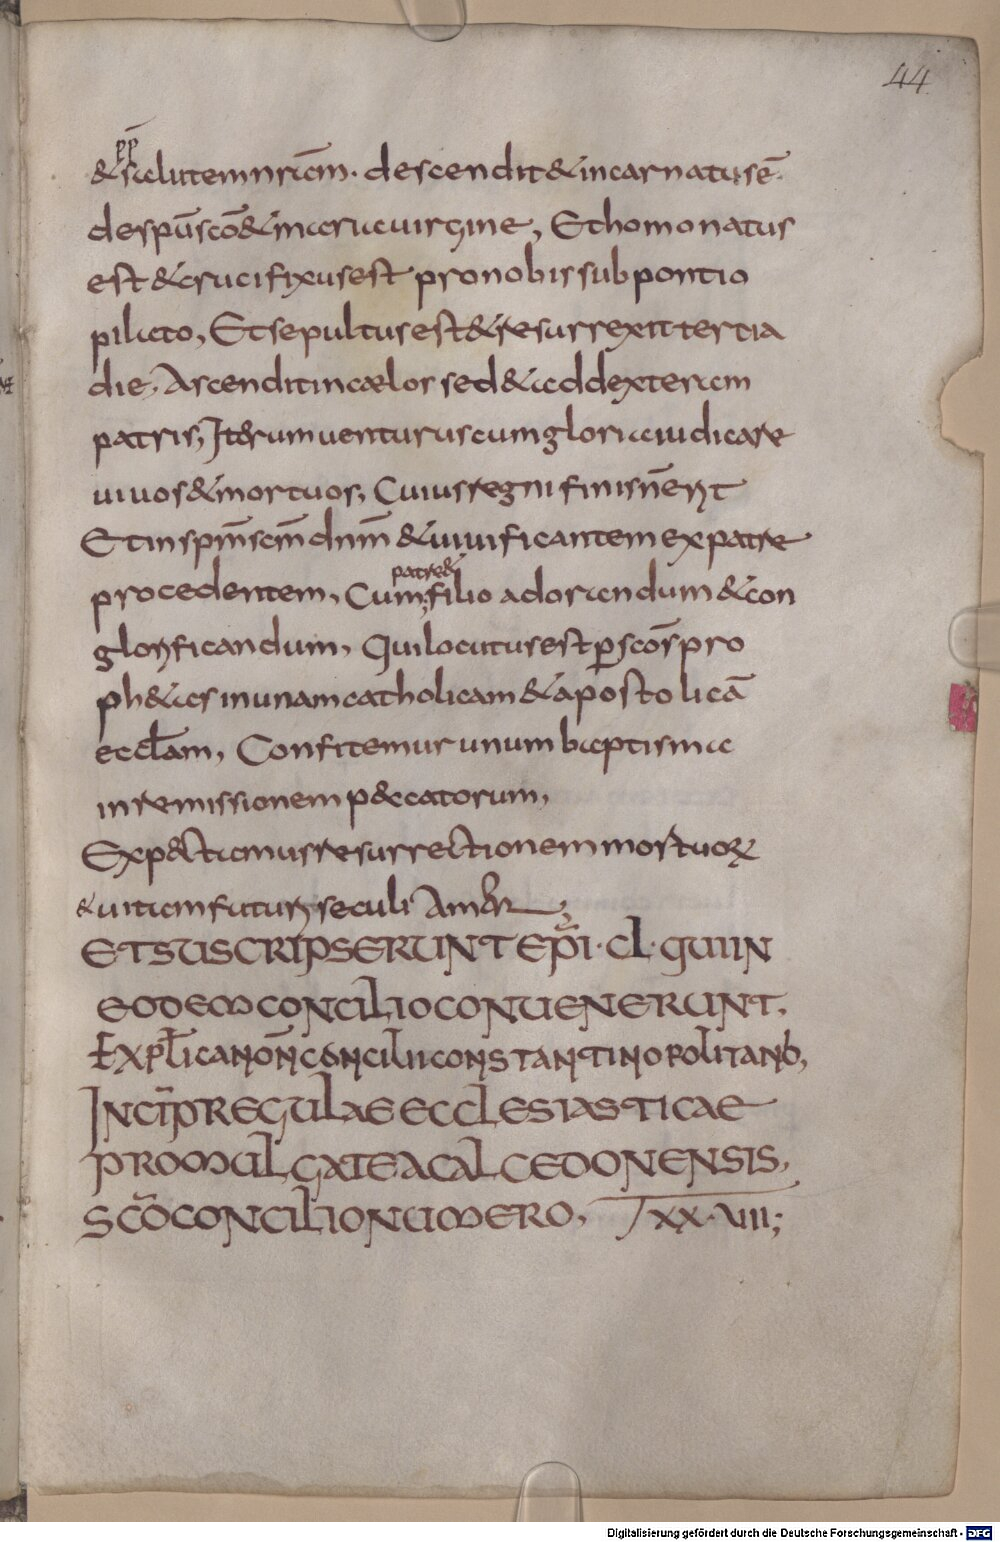 44
pp̄
& salutem nr̄am. descendit & incarnatus ē.
de spū sc̄o & maria uirgine, Et homo natus
est & crucifixus est pro nobis sub pontio
pilato, Et sepultus est & resurrexit tertia
die, Ascendit in cælos sed & ad dexteram
patris, Iterum uenturus cum gloria iudicare
uiuos & mortuos, Cuius regni finis n̄ erit
Et in spm̄ scm̄ dnm̄ & uiuificantem ex patre
patre &
procedentem, Cum filio adorandum & con
glorificandum, Qui locutus est ꝑ scōs pro
ph&as in unam catholicam & apostolicā
eccl̄am, Confitemur unum baptisma
in remissionem p&ccatorum,
Exp&ctamus resurrectionem mortuoꝝ
& uitam futuri seculi Amen
ET SUSCRIPSERUNT EPĪ · CL · QUI IN
EODEM CONCILIO CONUENERUNT.
Expl̄ canōn concilii constantinopolitani,
INCIP̄ REGULAE ECCLESIASTICAE
PROMULGATE A CALCEDONENSIS,
SC̄O CONCILIO NUMERO, XX·VIII;
Digitalisierung gefördert durch die Deutsche Forschungsgemeinschaft - DFG